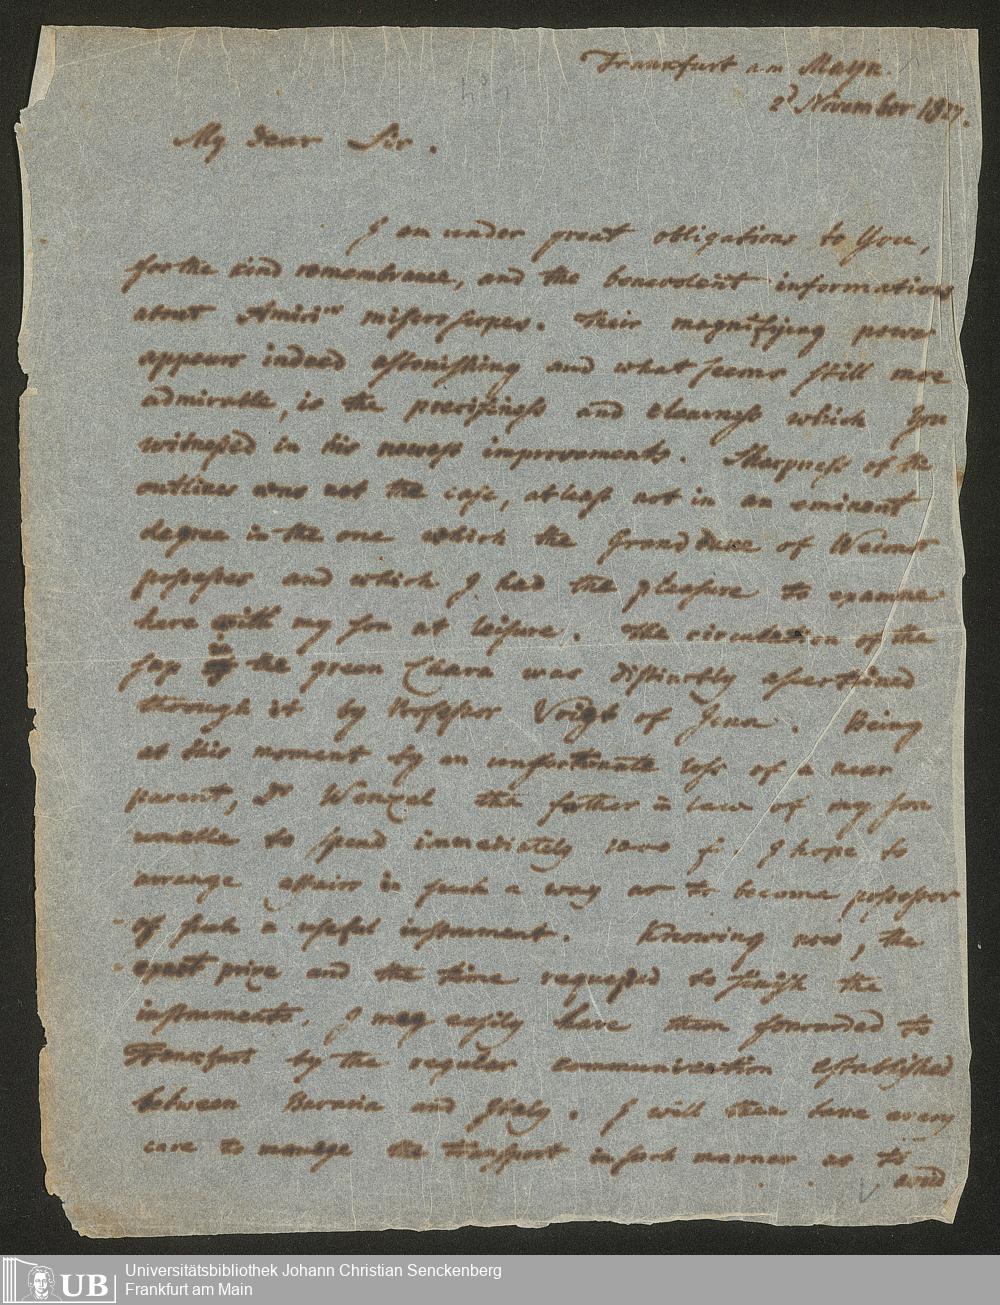 Frankfurt am Mayn.
2d November 1827.
My dear Sir.
I am under great obligations to You,
for the kind remembrance, and the benevolent informations
about Amici's misroscopes. Their magnifying power
appears indeed astonishing and what seems still more
admirable, is the preciseness and clearness which You
witnessed in his newest improvements. Sharpness of the
outlines was not the case, at least not in an eminent
degree in the one which the Grand duke of Weimar
possesses and which I had the pleasure to examine
here with my son at leisure. The circulation of the
sap in the green Chara was distinctly ascertained
through it by Professor Voigt of Jena. Being
at this moment by an unfortunate loss of a near
parent, Dr Wenzel the father in law of my son
unable to spend immediately f. I hope to
arrange affairs in such a way as to become possessor
of such a useful instrument. Knowing now, the
exact price and the time requested to finish the
instruments, I may easily have them forwarded to
Frankfurt by the regular communication established
between Bavaria and Italy. I will then have every
care to manage the transport in such manner as to
avoid
UB Universitätsbibliothek Johann Christian Senckenberg
Frankfurt am Main